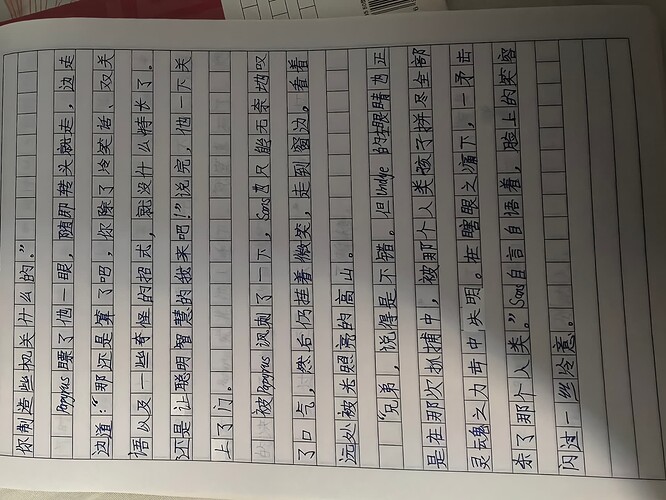 你制造些机关什么的。”
Papyrus瞟了他一眼，随即转头就走，边走
边道：“那还是算了吧，你除了冷笑话、双关
语以及一些奇怪的招式，就没什么特长了。
还是让聪明智慧的我来吧！”说完，他一下关
上了门。
被Papyrus讽刺了一下，Sans也只能无奈地叹
了口气，然后仍挂着微笑，走到窗边，看着
远处被光照亮的高山。
“兄弟，说得是不错。但Undye的左眼睛也正
是在那次抓捕中，被那个人类孩子拼尽全部
灵魂之力击中失明。在瞎眼之痛下，一矛击
杀了那个人类。”Sans自言自语着，脸上的笑容
闪过一丝冷意。